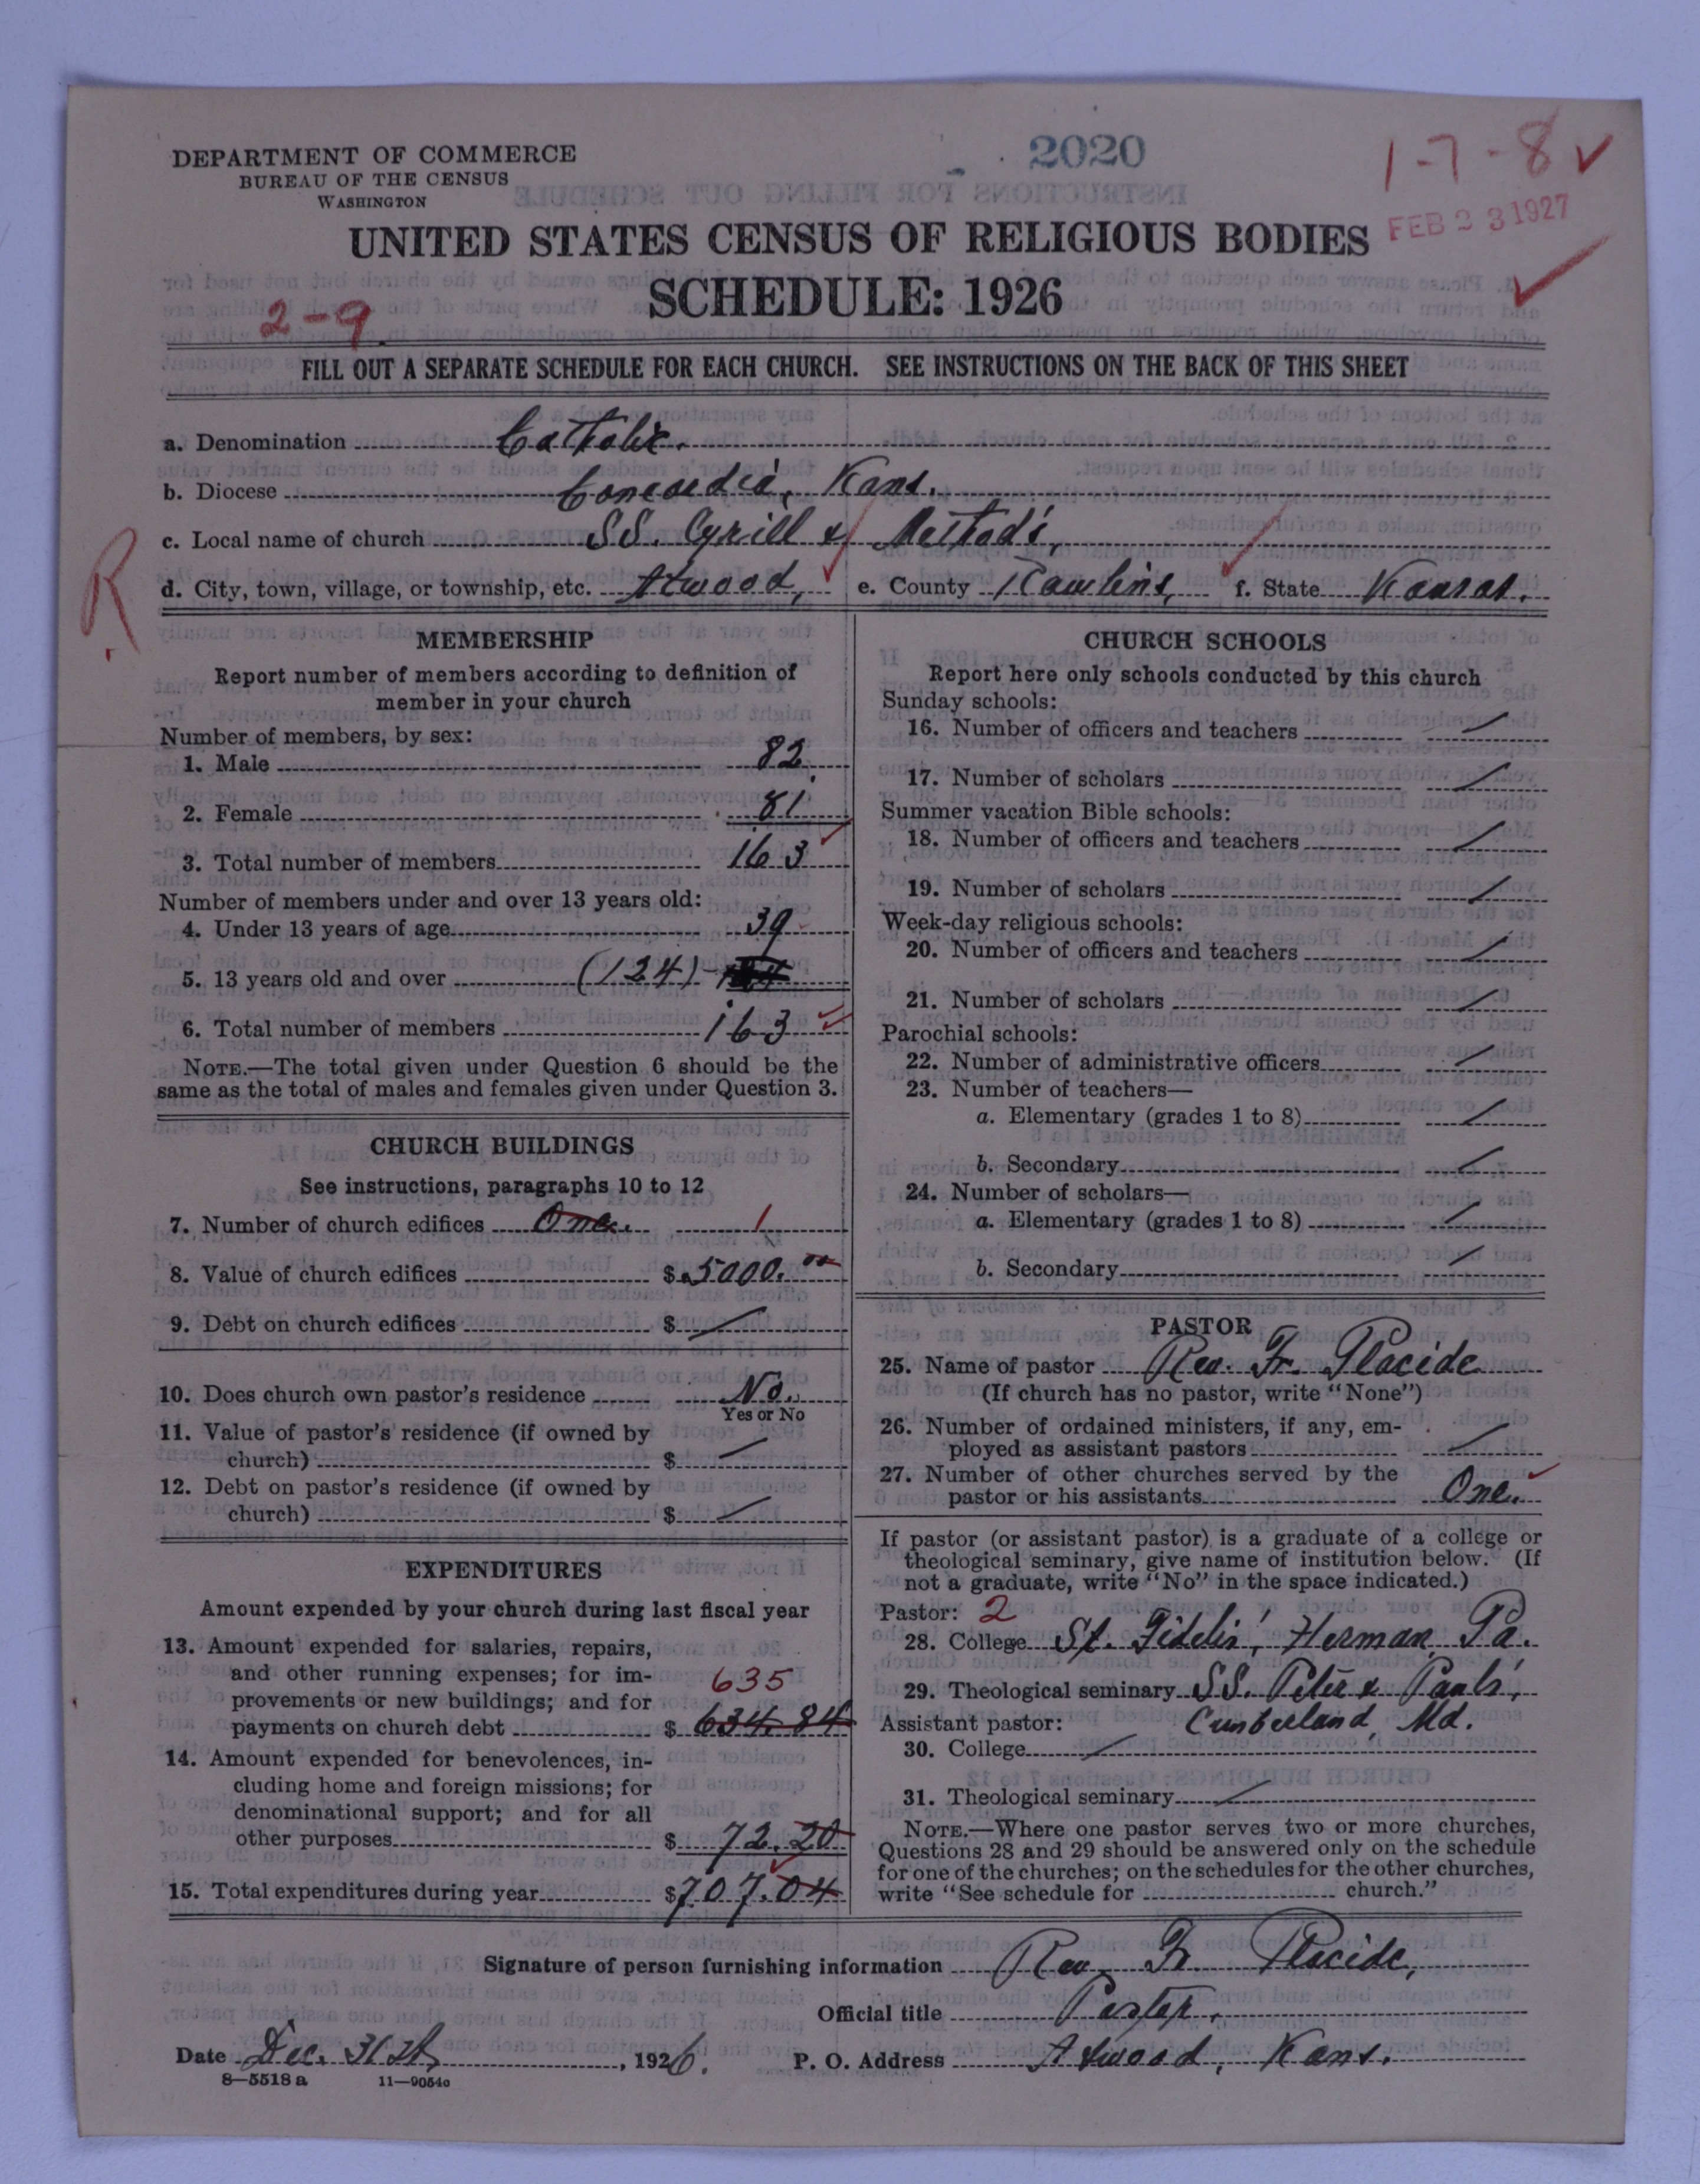 DEPARTMENT OF COMMERCE
BUREAU OF THE CENSUS
WASHINGTON
2020
1-7-8 ✓
FEB 23 1927
UNITED STATES CENSUS OF RELIGIOUS BODIES
SCHEDULE: 1926
2-9
FILL OUT A SEPARATE SCHEDULE FOR EACH CHURCH. SEE INSTRUCTIONS ON THE BACK OF THIS SHEET
a. Denomination Catholic.
b. Diocese Concordia, Kans.
c. Local name of church SS. Cyrill & Method's,
R
d. City, town, village, or township, etc. Atwood, e. County Rawlins, f. State Kansas.
MEMBERSHIP
Report number of members according to definition of
member in your church
Number of members, by sex:
1. Male 82
2. Female 81
3. Total number of members 163
Number of members under and over 13 years old:
4. Under 13 years of age 39
5. 13 years old and over (124)
6. Total number of members 163
NOTE.—The total given under Question 6 should be the
same as the total of males and females given under Question 3.
CHURCH BUILDINGS
See instructions, paragraphs 10 to 12
7. Number of church edifices One. 1
8. Value of church edifices $ 5000.00
9. Debt on church edifices $ /
10. Does church own pastor's residence No.
Yes or No
11. Value of pastor's residence (if owned by
church) $ /
12. Debt on pastor's residence (if owned by
church) $ /
EXPENDITURES
Amount expended by your church during last fiscal year
13. Amount expended for salaries, repairs,
and other running expenses; for im-
635
provements or new buildings; and for
payments on church debt $ 634.84
14. Amount expended for benevolences, in-
cluding home and foreign missions; for
denominational support; and for all
other purposes $ 72.20
15. Total expenditures during year $ 707.04
CHURCH SCHOOLS
Report here only schools conducted by this church
Sunday schools:
16. Number of officers and teachers /
17. Number of scholars /
Summer vacation Bible schools:
18. Number of officers and teachers /
19. Number of scholars /
Week-day religious schools:
20. Number of officers and teachers /
21. Number of scholars /
Parochial schools:
22. Number of administrative officers /
23. Number of teachers—
a. Elementary (grades 1 to 8) /
b. Secondary /
24. Number of scholars—
a. Elementary (grades 1 to 8) /
b. Secondary /
PASTOR
25. Name of pastor Rev. Fr. Placide
(If church has no pastor, write "None")
26. Number of ordained ministers, if any, em-
ployed as assistant pastors /
27. Number of other churches served by the
pastor or his assistants One.
If pastor (or assistant pastor) is a graduate of a college or
theological seminary, give name of institution below. (If
not a graduate, write "No" in the space indicated.)
Pastor: 2
28. College St. Fidelis', Herman Pa.
29. Theological seminary SS. Peter & Paul's,
Assistant pastor: Cumberland, Md.
30. College /
31. Theological seminary /
NOTE.—Where one pastor serves two or more churches,
Questions 28 and 29 should be answered only on the schedule
for one of the churches; on the schedules for the other churches,
write "See schedule for church."
Signature of person furnishing information Rev. Fr. Placide,
Official title Pastor,
Date Dec. 31st, 1926. P. O. Address Atwood, Kans.
8—5518 a 11—9054o